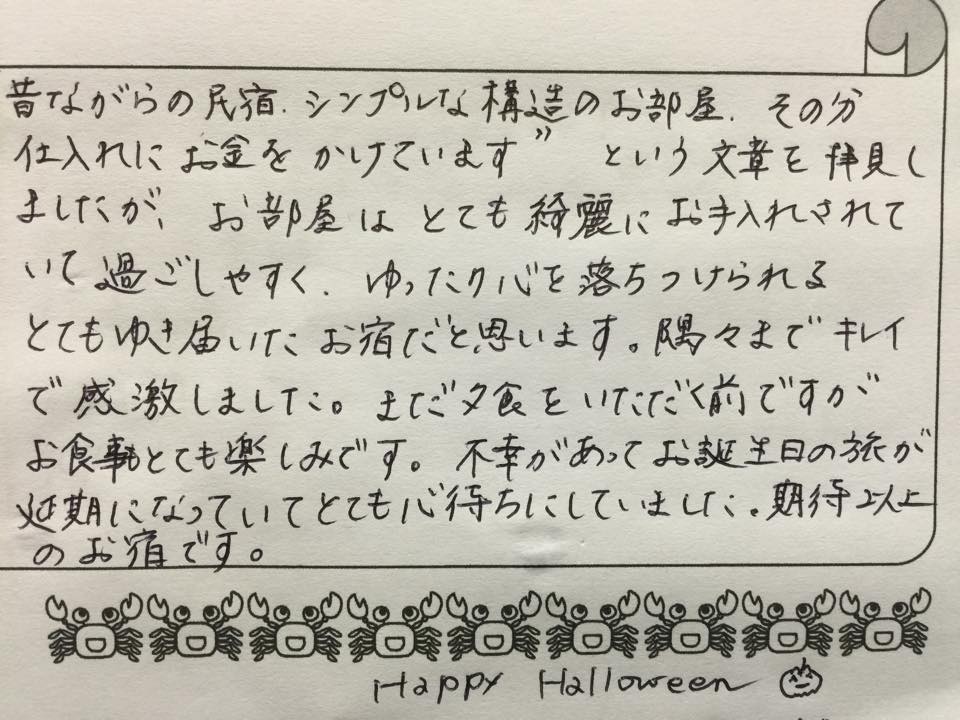 昔ながらの民宿.シンプルな構造のお部屋.その分
仕入れにお金をかけています” という文章を拝見し
ましたが、お部屋はとても綺麗にお手入れされて
いて過ごしやすく、ゆったり心を落ちつけられる
とてもゆき届いたお宿だと思います。隅々までキレイ
で感激しました。まだ夕食をいただく前ですが
お食事もとても楽しみです。不幸があってお誕生日の旅が
延期になっていてとても心待ちにしていました。期待以上
のお宿です。
Happy Halloween